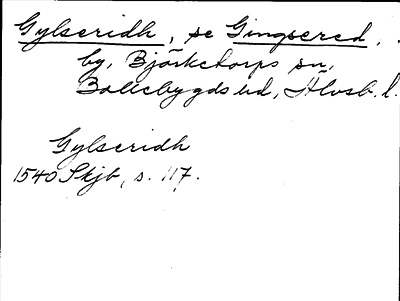 Gylseridh, se Gingsered,
by, Björketorps sn,
Bollebygds hd, Älvsb. l.
Gylseridh
1540 Skjb, s. 117.